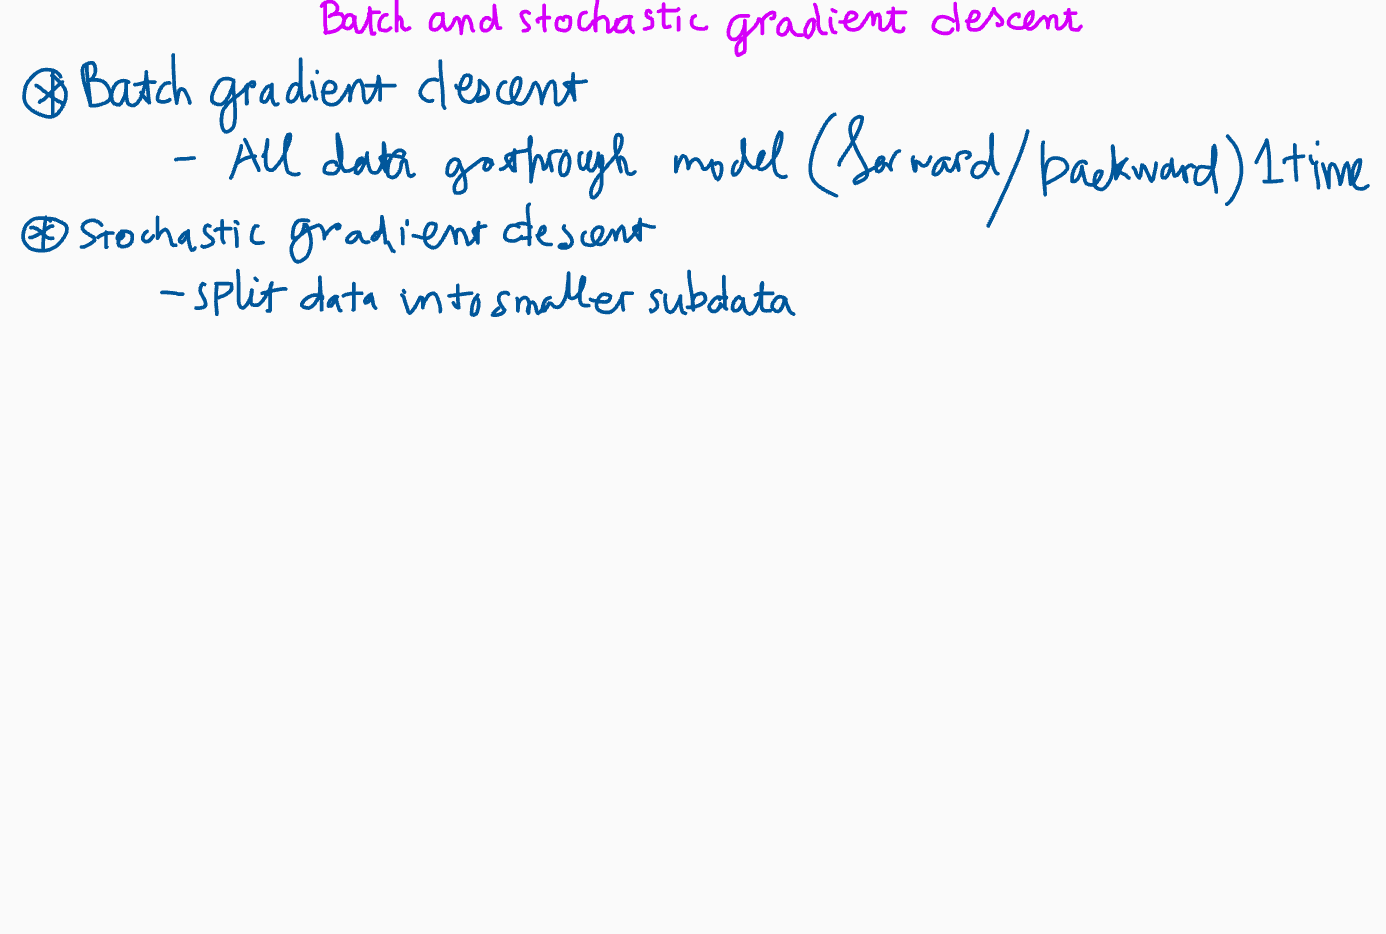 Batch and stochastic gradient descent
⊛ Batch gradient descent
- All data go through model (forward/backward) 1 time
⊛ Stochastic gradient descent
- split data into smaller subdata